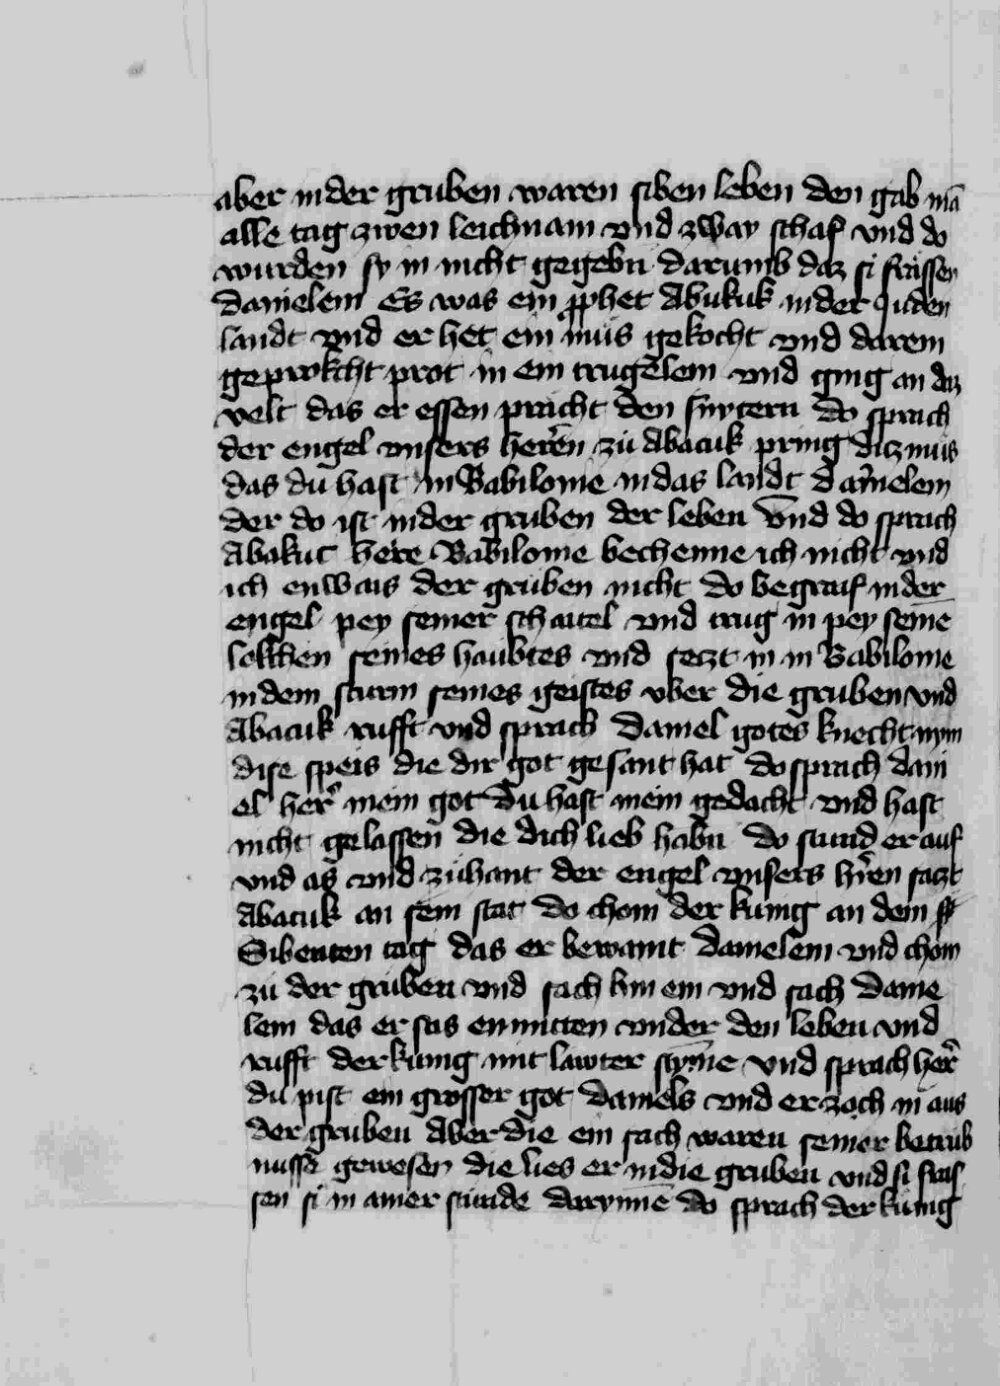 aber in der gruben waren siben leben den gab mā
alle tag zwen leichnam vnd zway schaf vnd do
wurden sy in nicht gegebn darumb daz si frässen
danielem Es was ein pphet Abukuk in der Juden
landt vnd er het ein mus gekocht vnd darein
geprokcht prot in ein trugelein vnd ging an daz
velt das er essen pracht den snytern do sprach
der engel vnsers herēn zu Abacuk pring ditz mus
das du hast in Babilonie in das landt danielem
der do ist in der gruben der leben vnd do sprach
Abakuc here Babilonie bechenne ich nicht vnd
ich enwais der gruben nicht do begraif in der
engel pey seiner schaitel vnd trug in pey seinē
lokchen seines haubtes vnd setzt in in Babilonie
in dem sturm seines geistes vber die gruben vnd
Abacuk rufft vnd sprach Daniel gotes knecht nym
dise speis die dir got gesant hat do sprach dani
el her mein got du hast mein gedacht vnd hast
nicht gelassen die dich lieb habn do stund er auf
vnd as vnd zuhant der engel vnsers hren satzt
Abacuk an sein stat do chom der kunig an dem
Sibenten tag das er bewaint danielem vnd chom
zu der gruben vnd sach hin ein vnd sach danie
lem das er sas enmitten vnder den leben vnd
rufft der kunig mit lawter stymē vnd sprach her
du pist ein grosser got Daniels vnd er zoch in aus
der gruben Aber die ein sach waren seiner betrub
nusse gewesen die lies er in die gruben vnd si fras
sen si in ainer stunde darynnē do sprach der kunig